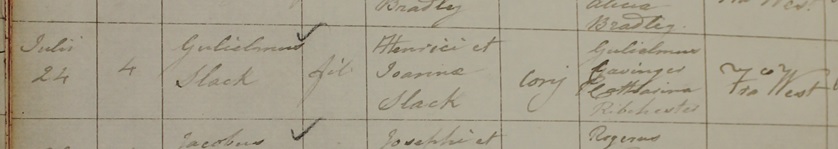 Bradley
Alicia
Bradley.
Julii
24
4
Gulielmus
Slack
fil
Henrici et
Joannæ
Slack
conj
Gulielmus
Gavinger
Catharina
Ribchester
Fra West
Jacobus
Josephi et
Rogerus